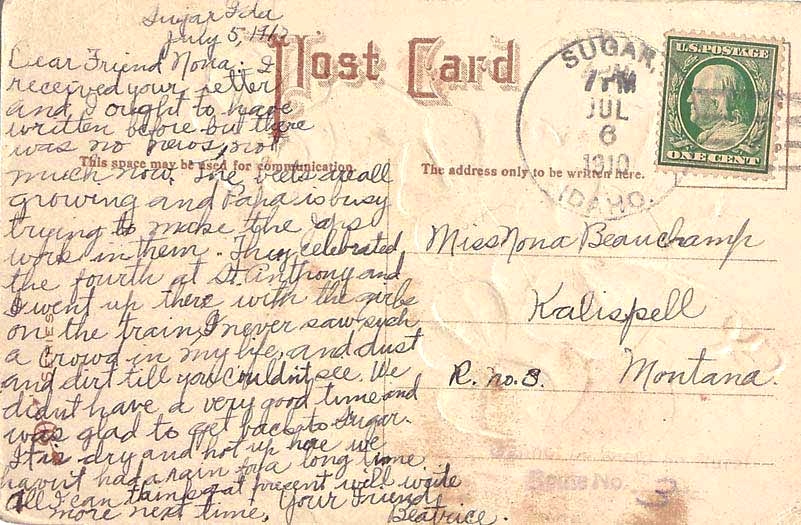 Sugar Ida
July 5, 1910
Dear Friend Nona: I
received your letter
and I ought to have
written before but there
was no news, nor
much now. The beets are all
growing and Papa is busy
trying to make the Japs
work in them. They celebrated
the fourth at St. Anthony and
I went up there with the girls
on the train, I never saw such
a crowd in my life, and dust
and dirt till you couldn't see. We
didnt have a very good time and
was glad to get back to Sugar.
It is dry and hot up here we
havn't had a rain for a long time
All I can think of at present will write
more next time, Your Friend
Beatrice.
Post Card
This space may be used for communication.
The address only to be written here.
SUGAR,
7 PM
JUL
6
1910
IDAHO.
U.S. POSTAGE
ONE CENT
Miss Nona Beauchamp
Kalispell
R. no. 3. Montana.
Route No. 3
SERIES